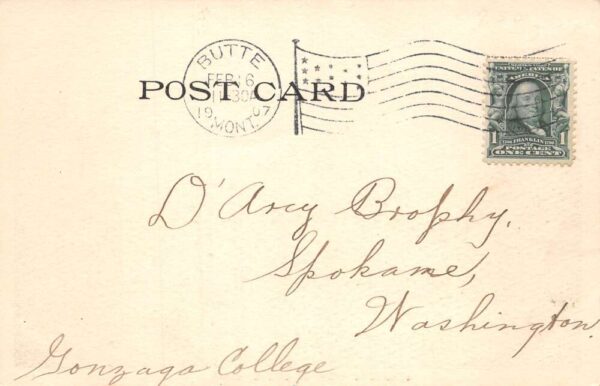 BUTTE
FEB 16
1907
MONT.
POST CARD
UNITED STATES OF
1
FRANKLIN
1
POSTAGE
ONE CENT
D'Arcy Brophy,
Spokane,
Washington
Gonzaga College